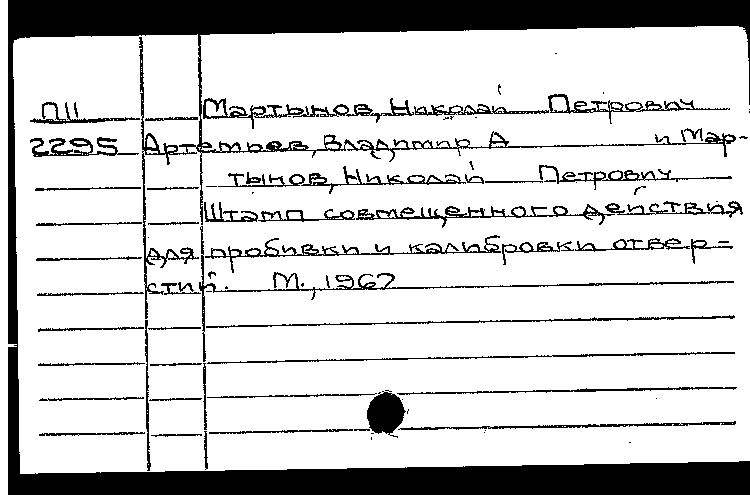 П11 Мартынов, Николай Петрович
2295 Артемьев, Владимир А и Мар-
тынов, Николай Петрович.
Штамп совмещенного действия
для пробивки и калибровки отвер=
стий. М., 1967